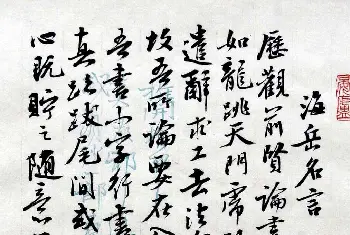 海岳名言
歷觀前賢論書
如龍跳天門虎
遣辭求工去法
故吾所論要在入
吾書小字行書
真跡跋尾間或
心既貯之隨意